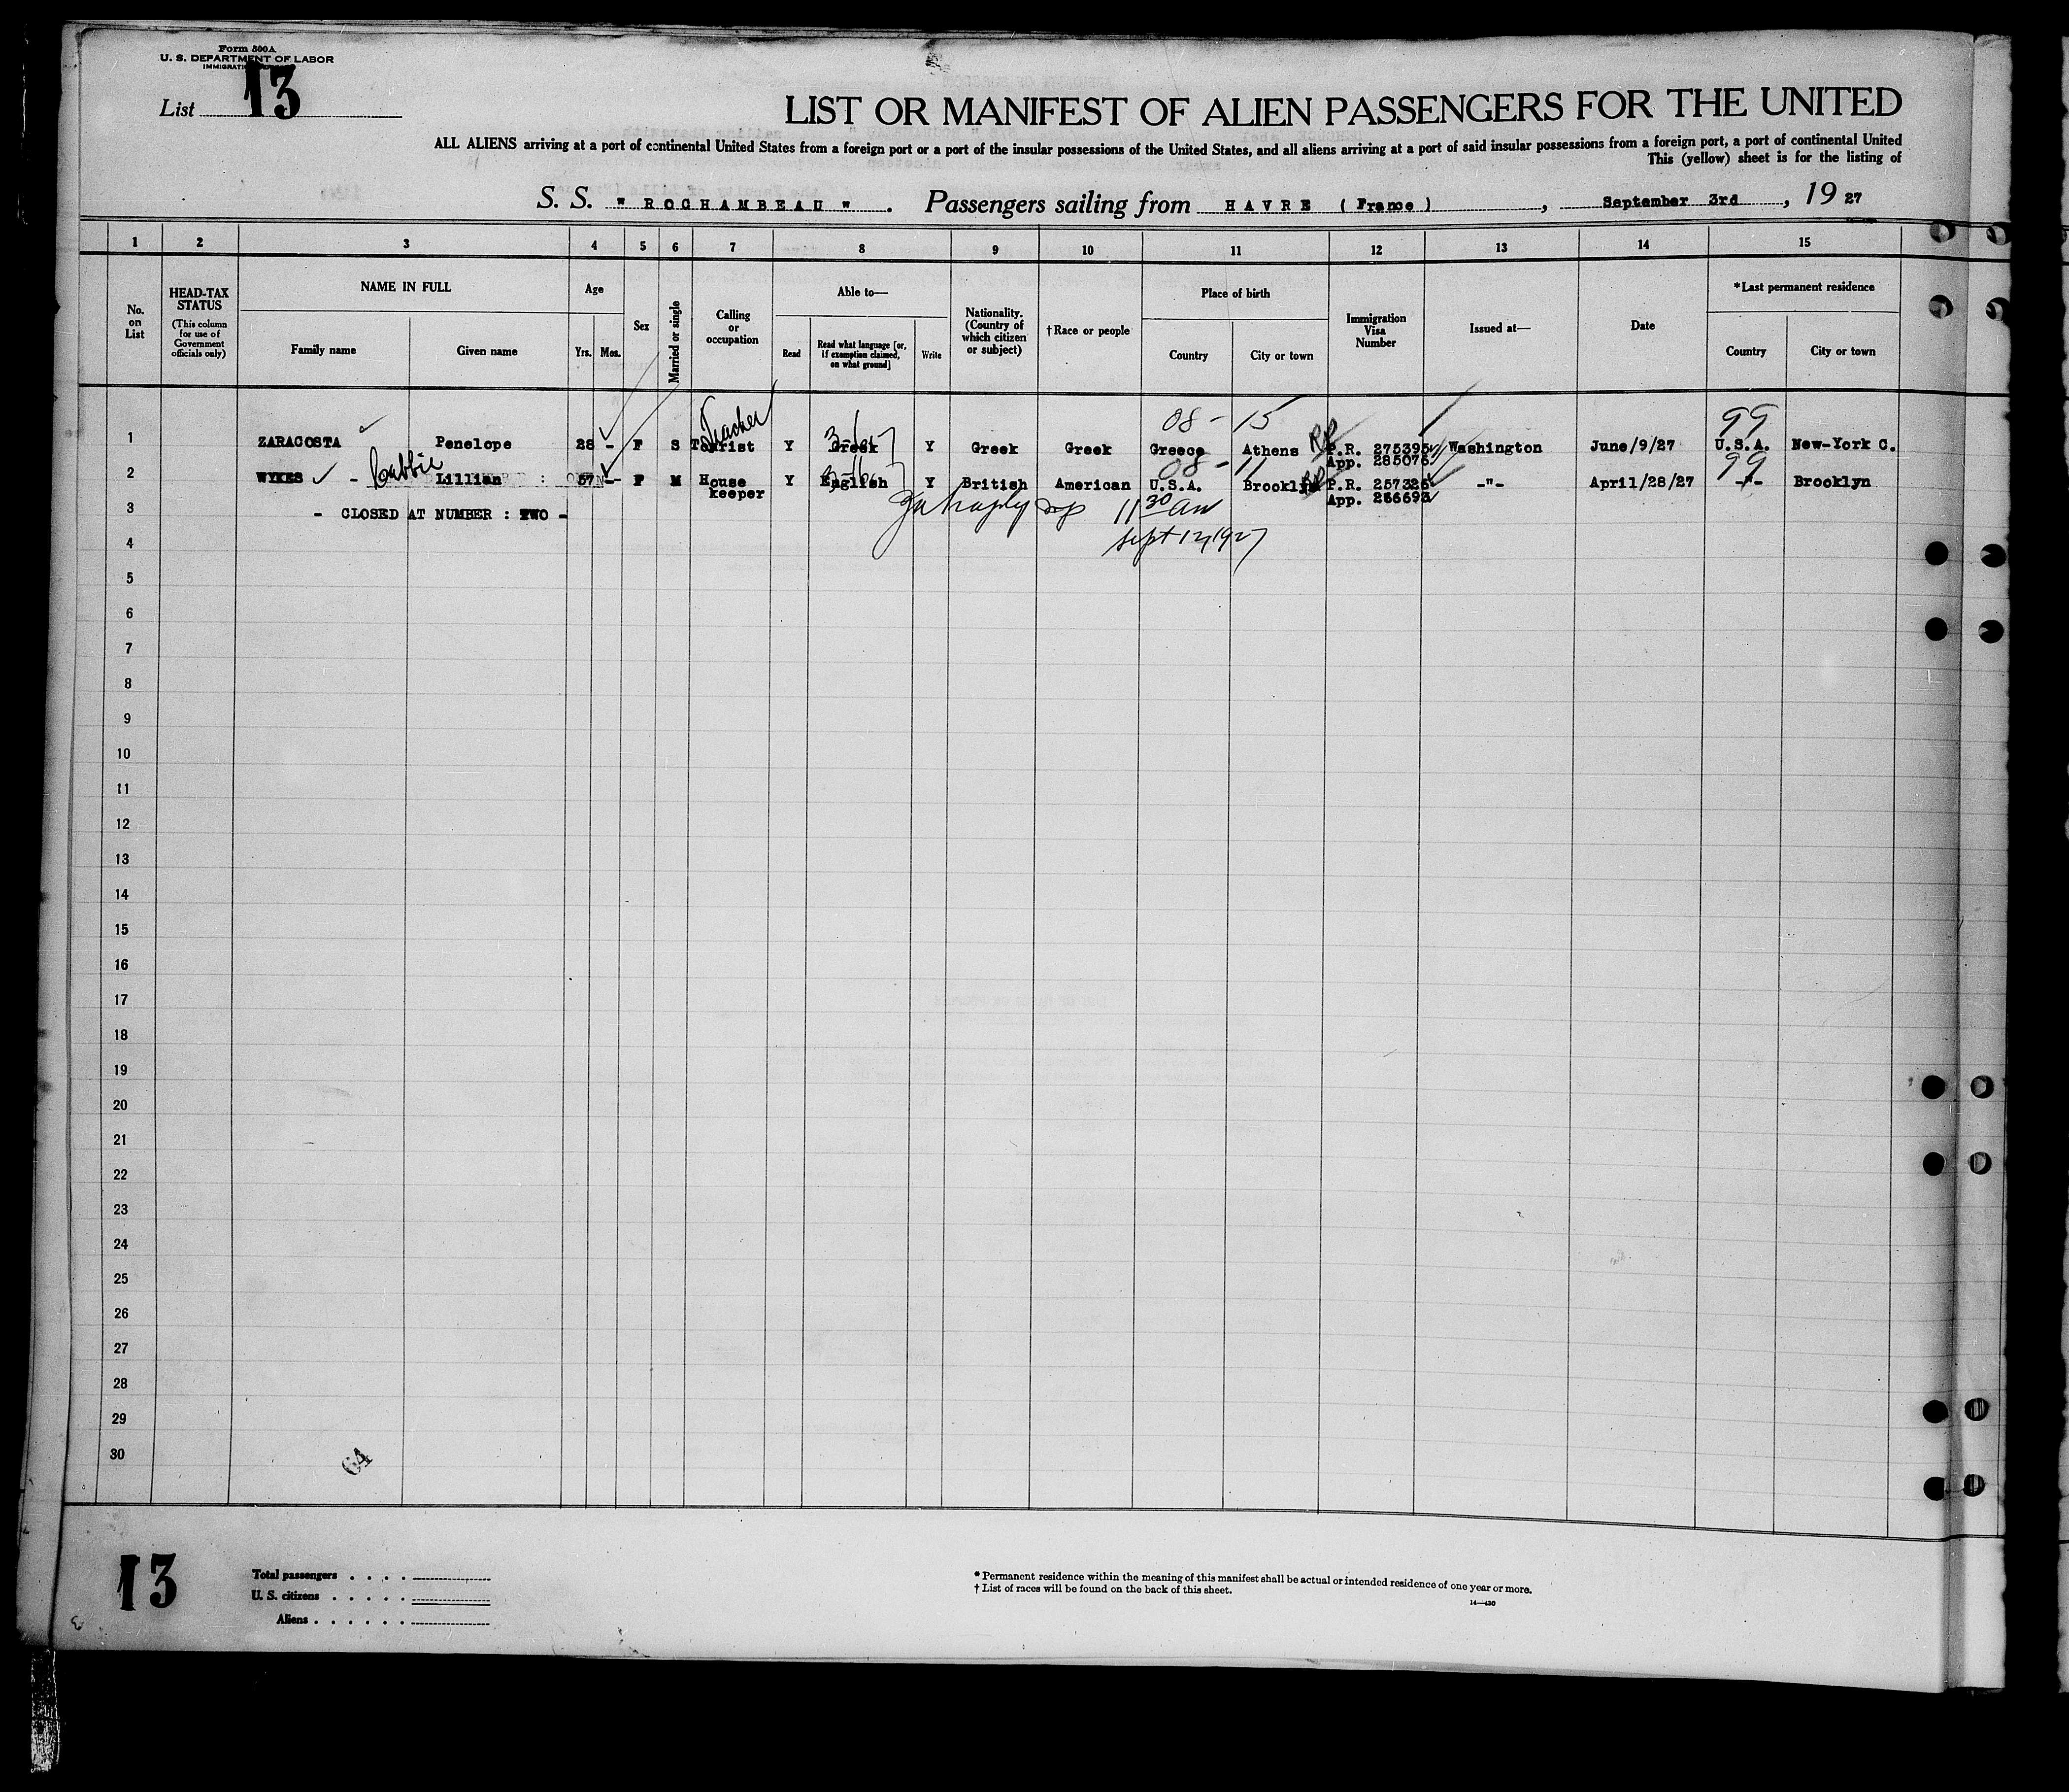 Form 500A
U. S. DEPARTMENT OF LABOR
List 13
LIST OR MANIFEST OF ALIEN PASSENGERS FOR THE UNITED
ALL ALIENS arriving at a port of continental United States from a foreign port or a port of the insular possessions of the United States, and all aliens arriving at a port of said insular possessions from a foreign port, a port of continental United
This (yellow) sheet is for the listing of
S. S. " ROCHAMBEAU " . Passengers sailing from HAVRE (France) , September 3rd , 19 27
1 2 3 4 5 6 7 8 9 10 11 12 13 14 15
No. on List
HEAD-TAX STATUS
(This column for use of Government officials only)
NAME IN FULL
Family name Given name
Age
Yrs. Mos.
Sex
Married or single
Calling or occupation
Able to—
Read
Read what language [or, if exemption claimed, on what ground]
Write
Nationality. (Country of which citizen or subject)
† Race or people
Place of birth
Country City or town
Immigration Visa Number
Issued at—
Date
* Last permanent residence
Country City or town
Teacher 08-15 99
1 ZARACOSTA Penelope 28 - F S Tourist Y Greek Y Greek Greek Greece Athens P.R. 275395 Washington June/9/27 U.S.A. New-York C.
App. 285076
08-11 99
2 WYKES - Lillian 57 - F M House keeper Y English Y British American U.S.A. Brooklyn P.R. 257325 -"- April/28/27 -"- Brooklyn
App. 266693
3 - CLOSED AT NUMBER : TWO -
11 30 AM
Sept 12, 1927
4
5
6
7
8
9
10
11
12
13
14
15
16
17
18
19
20
21
22
23
24
25
26
27
28
29
30
64
13
Total passengers . . . .
U. S. citizens . . . . .
Aliens . . . . . .
* Permanent residence within the meaning of this manifest shall be actual or intended residence of one year or more.
† List of races will be found on the back of this sheet.
14—430